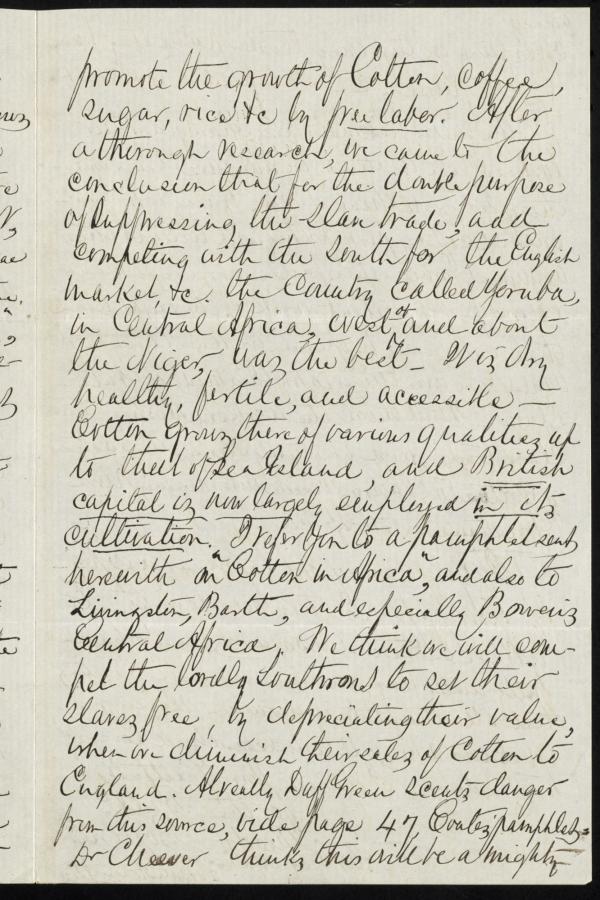 promote the growth of Cotton, coffee,
sugar, rice &c by free labor. After
a thorough research, we came to the
conclusion that for the double purpose
of suppressing the slave trade, and
competing with the South for the English
market, &c. the Country called Yoruba,
in Central Africa, west of and about
the Niger, was the best — 
healthy, fertile, and accessible —
Cotton grows there of various qualities up
to that of Sea Island, and British
capital is now largely employed in its
cultivation. I refer you to a pamphlet sent
herewith on "Cotton in Africa", and also to
Livingston, Barth, and especially Bowen's
Central Africa. We think we will com-
pel the lordly Southrons to set their
slaves free, by depreciating their value,
when we diminish their sales of Cotton to
England. Already Duff Green scents danger
from this source, vide page 47, Coates pamphlet =
Dr Cheever thinks this will be a mighty